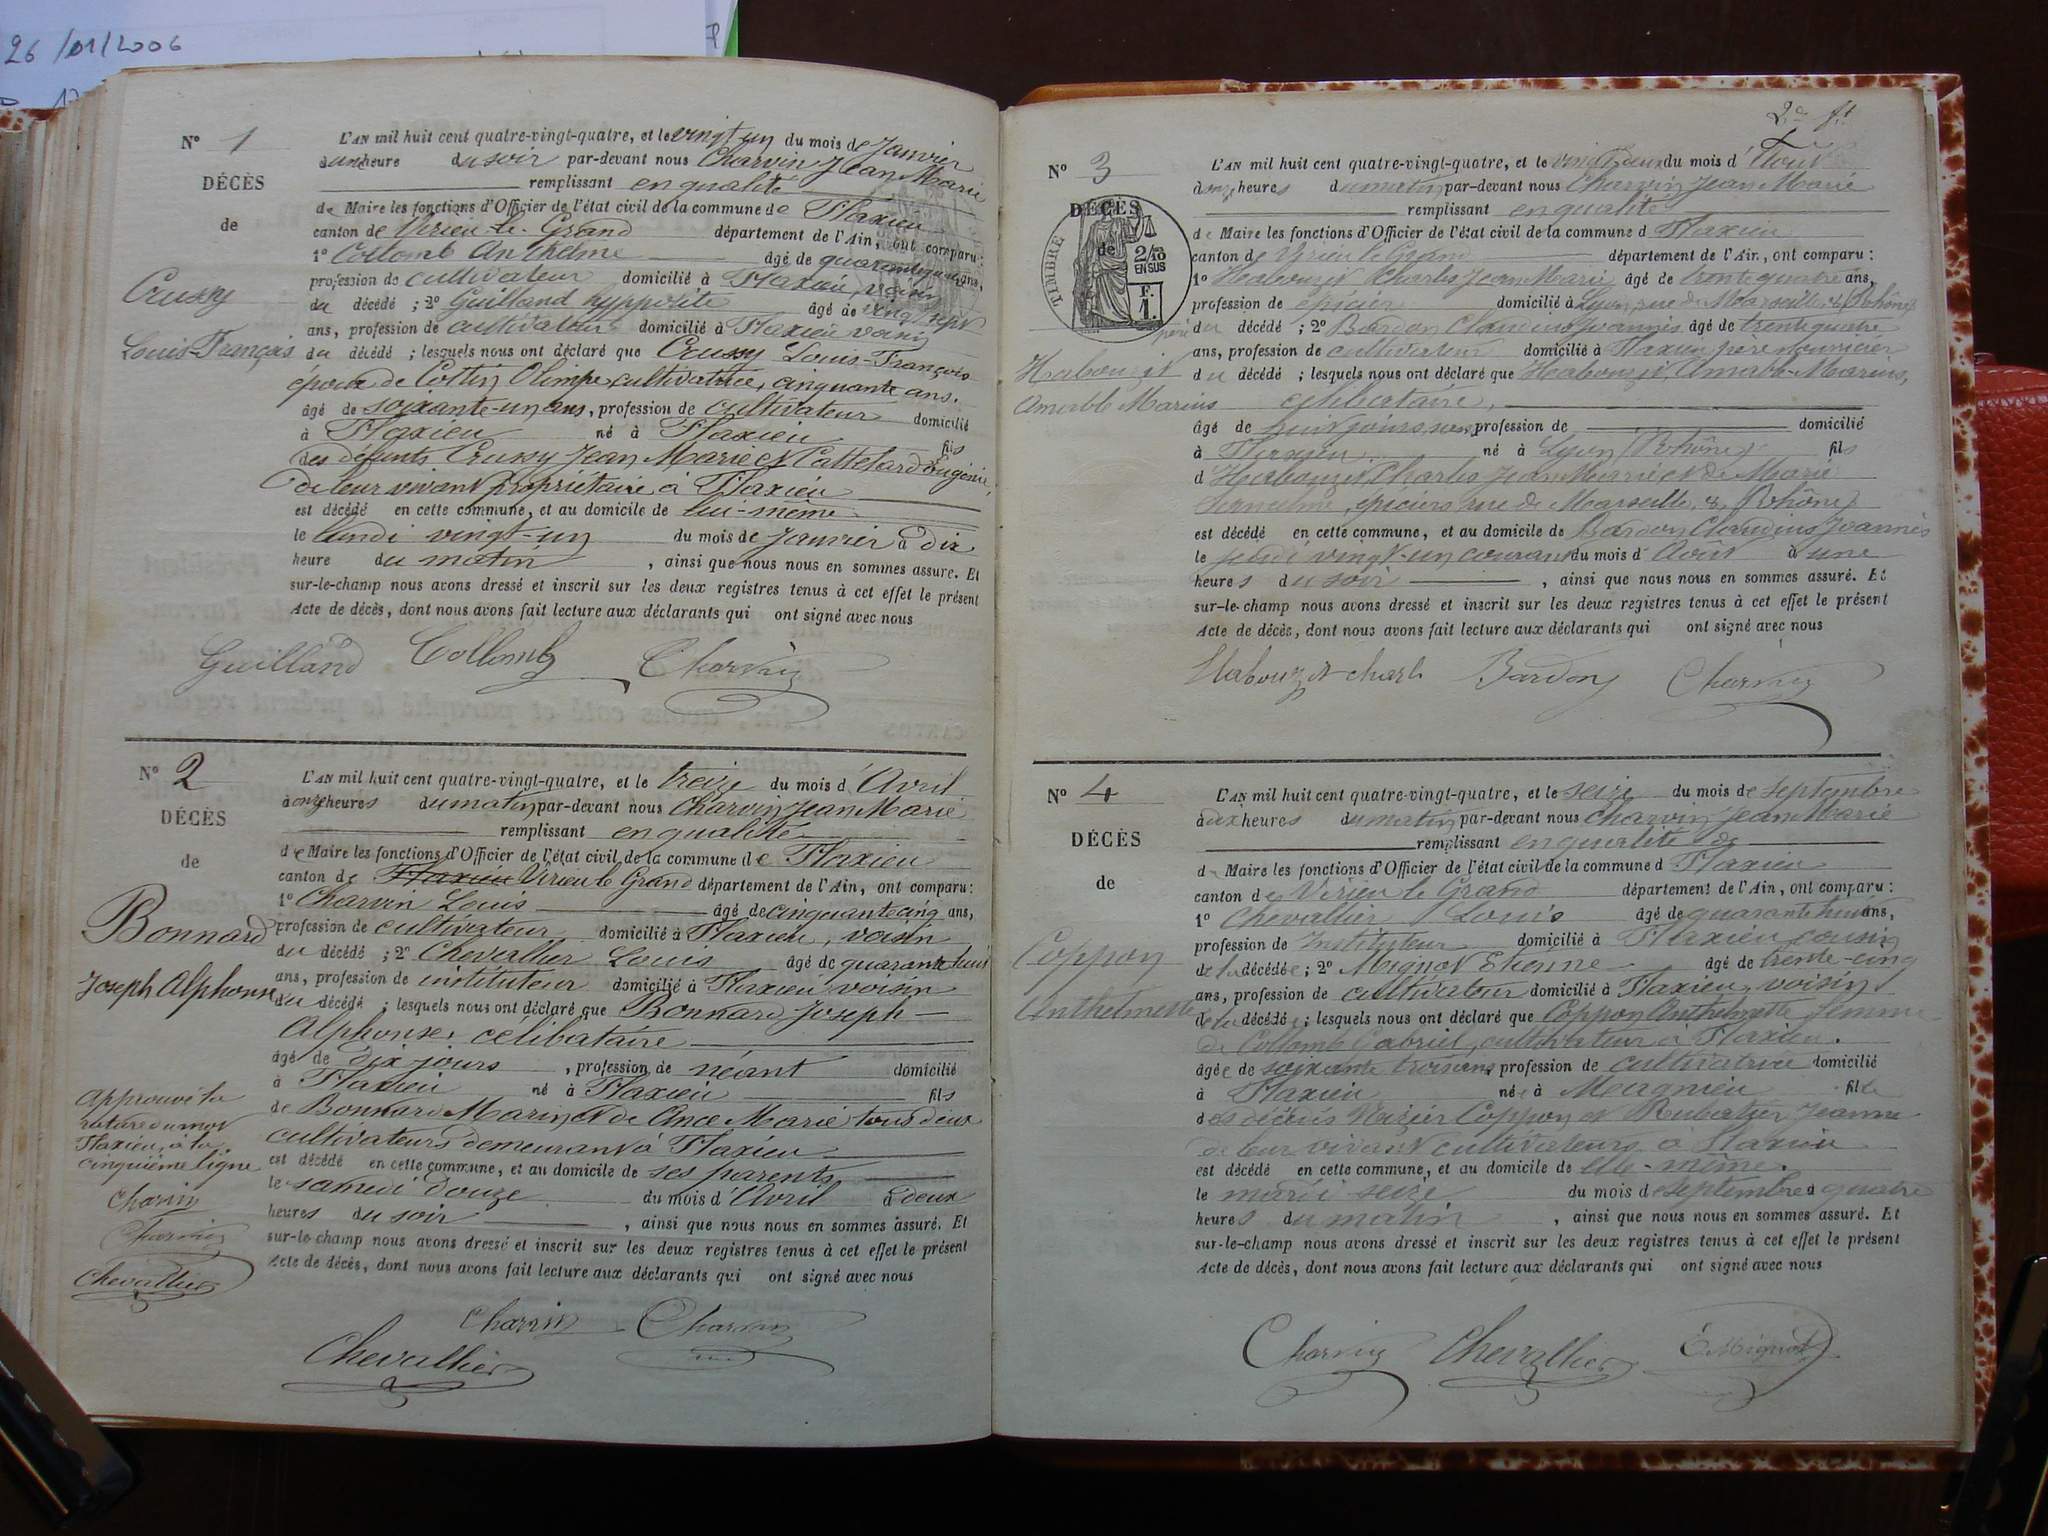 26/01/2006
N° 1
DÉCÈS
de
Crussy
Louis-François
L'AN mil huit cent quatre-vingt-quatre, et le vingt un du mois de Janvier
à une heure du soir par-devant nous Charvin Jean Marie
remplissant en qualité
de Maire les fonctions d'Officier de l'état civil de la commune de Flaxieu
canton de Virieu-le-Grand département de l'Ain, ont comparu :
1° Collomb Anthelme âgé de ans,
profession de cultivateur domicilié à Flaxieu, voisin
du décédé ; 2° Guilland hyppolite âgé de vingt sept
ans, profession de cultivateur domicilié à Flaxieu voisin
du décédé ; lesquels nous ont déclaré que Crussy Louis-François
époux de Cottin Olimpe, cultivatrice, cinquante ans.
âgé de soixante-un ans, profession de cultivateur domicilié
à Flaxieu né à Flaxieu fils
des défunts Crussy Jean Marie et Eugénie,
de leur vivant propriétaire à Flaxieu
est décédé en cette commune, et au domicile de lui-même
le lundi vingt-un du mois de Janvier à dix
heure du matin, ainsi que nous nous en sommes assuré. Et
sur-le-champ nous avons dressé et inscrit sur les deux registres tenus à cet effet le présent
Acte de décès, dont nous avons fait lecture aux déclarants qui ont signé avec nous
Guilland Collomb Charvin
N° 2
DÉCÈS
de
Bonnard
Joseph Alphonse
L'AN mil huit cent quatre-vingt-quatre, et le treize du mois d'Avril
à onze heures du matin par-devant nous Charvin Jean Marie
remplissant en qualité
de Maire les fonctions d'Officier de l'état civil de la commune de Flaxieu
canton de Flaxieu Virieu le Grand département de l'Ain, ont comparu :
1° Charvin Louis âgé de cinquante cinq ans,
profession de cultivateur domicilié à Flaxieu, voisin
du décédé ; 2° Chevallier Louis âgé de quarante huit
ans, profession de instituteur domicilié à Flaxieu voisin
du décédé ; lesquels nous ont déclaré que Bonnard Joseph-
Alphonse, célibataire
âgé de dix jours, profession de néant domicilié
à Flaxieu né à Flaxieu fils
de Bonnard Marin et de Ance Marie tous deux
cultivateurs demeurant à Flaxieu
est décédé en cette commune, et au domicile de ses parents
le samedi douze du mois d'Avril à deux
heures du soir, ainsi que nous nous en sommes assuré. Et
sur-le-champ nous avons dressé et inscrit sur les deux registres tenus à cet effet le présent
Acte de décès, dont nous avons fait lecture aux déclarants qui ont signé avec nous
Approuvé la
rature du mot
Flaxieu, à la
cinquième ligne
Charvin
Charvin
Chevallier
Charvin Charvin
Chevallier
2e ft
N° 3
DÉCÈS
de
TIMBRE
2/10
EN SUS
F.
1.
Habouzit
Amable Marius
L'AN mil huit cent quatre-vingt-quatre, et le vingt deux du mois d'Août
à onze heures du matin par-devant nous Charvin Jean Marie
remplissant en qualité
de Maire les fonctions d'Officier de l'état civil de la commune d Flaxieu
canton de Virieu le Grand département de l'Ain, ont comparu :
1° Habouzit Charles Jean Marie âgé de trente quatre ans,
profession de épicier domicilié à Lyon, rue de Marseille, 8, (Rhône) père
du décédé ; 2° Bardon Claudius Joannès âgé de trente quatre
ans, profession de cultivateur domicilié à Flaxieu père nourricier
du décédé ; lesquels nous ont déclaré que Habouzit, Amable-Marius,
célibataire,
âgé de huit jours, profession de domicilié
à Flaxieu né à Lyon (Rhône) fils
d'Habouzit Charles Jean Marie et de Marie
épiciers rue de Marseille, 8, (Rhône)
est décédé en cette commune, et au domicile de Bardon Claudius Joannès
le jeudi vingt-un courant du mois d'Août à une
heures du soir, ainsi que nous nous en sommes assuré. Et
sur-le-champ nous avons dressé et inscrit sur les deux registres tenus à cet effet le présent
Acte de décès, dont nous avons fait lecture aux déclarants qui ont signé avec nous
Habouzit charls Bardon Charvin
N° 4
DÉCÈS
de
Coppon
Anthelmette
L'AN mil huit cent quatre-vingt-quatre, et le seize du mois de septembre
à dix heures du matin par-devant nous Charvin Jean Marie
remplissant en qualité de
d Maire les fonctions d'Officier de l'état civil de la commune d Flaxieu
canton de Virieu le Grand département de l'Ain, ont comparu :
1° Chevallier Louis âgé de quarante huit ans,
profession de Instituteur domicilié à Flaxieu cousin
de la décédée ; 2° Mignot Etienne âgé de trente-cinq
ans, profession de cultivateur domicilié à Flaxieu, voisin
de la décédée ; lesquels nous ont déclaré que Coppon Anthelmette femme
de Collomb Gabriel, cultivateur à Flaxieu.
âgée de soixante trois ans, profession de cultivatrice domicilié
à Flaxieu née à Meragnieu fille
des décédés Coppon et Jeanne
de leur vivant cultivateurs à Flaxieu
est décédé en cette commune, et au domicile de elle-même.
le mardi seize du mois de septembre à quatre
heures du matin, ainsi que nous nous en sommes assuré. Et
sur-le-champ nous avons dressé et inscrit sur les deux registres tenus à cet effet le présent
Acte de décès, dont nous avons fait lecture aux déclarants qui ont signé avec nous
Charvin Chevallier E Mignot